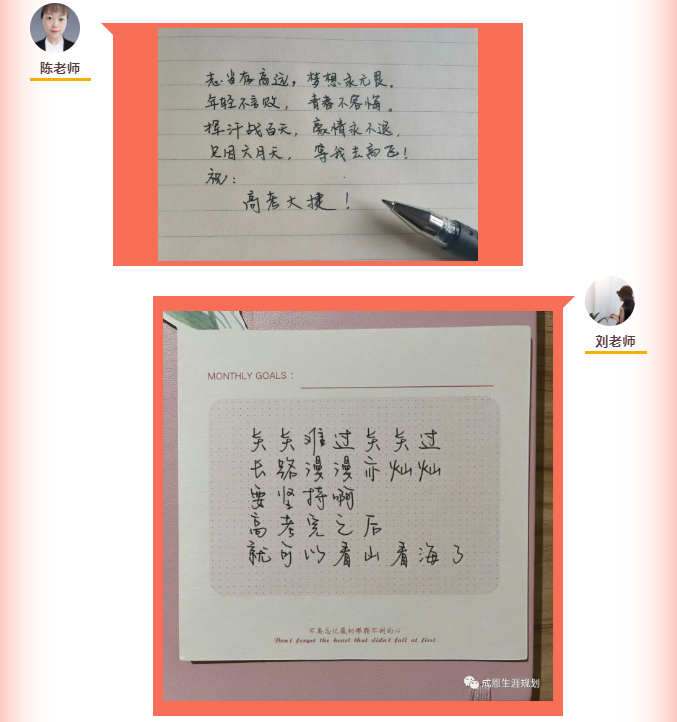 陈老师
志当存高远，梦想永无畏。
年轻不言败，青春不容悔。
挥汗战百天，豪情永不退。
只因六月天，等我去高飞！
祝：
高考大捷！
刘老师
MONTHLY GOALS：
关关难过关关过
长路漫漫亦灿灿
要坚持啊
高考完之后
就可以看山看海了
不要忘记最初那颗不倒的心
Don't forget the heart that didn't fall at first
成恩生涯规划